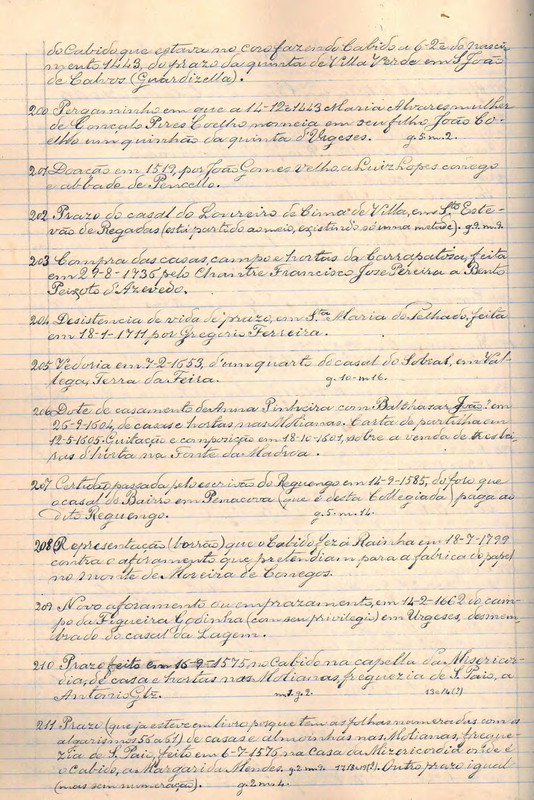 do Cabido que estava no coro fazendo Cabido a 6-2º do nasci-
mento 1443, do prazo da quinta de Villa Verde em S. João
de Calvos (Guardizella).
200 Pergaminho em que a 14-12-1443 Maria Alvares mulher
de Gonçalo Pires Coelho nomeia em seu filho, João Co-
elho um quinhão da quinta d'Urgeses. g. 5. m. 2.
201 Doação em 1519, por João Gomes velho, a Luiz Lopes conego
e abbade de Pencello.
202 Prazo do casal do Loureiro de Cima de Villa, em Stº Este-
vão de Regadas (está partido ao meio, existindo só uma metade). g. 2. m. 9.
203 Compra das casas, campo e hortas da Carrapatosa, feita
em 29-8-1736 pelo Chantre Francisco José Pereira a Bento
Peixoto d'Azevedo.
204 Desistencia de vida de prazo, em Stª Maria de Telhado, feita
em 18-1-1711 por Gregorio Ferreira.
205 Vedoria em 7-2-1653, d'um quarto do casal do Sobral, em Val-
lega, Terra da Feira. g. 10-m. 16.
206 Dote de casamento de Anna Pinheira com Balthasar João? em
26-9-1604, de casas e hortas nas Molianas. Carta de partilha em
12-5-1605. Quitação e composição em 18-10-1601, sobre a venda de
d'horta na Fonte da Madroa.
207 Certidão passada pelo escrivão do Reguengo em 14-9-1585, do foro que
o casal do Bairro em Penacova (que é desta Collegiada) paga ao
dito Reguengo. g. 5. m. 14.
208 Representação (borrão) que o Cabido fez á Rainha em 18-7-1799
contra o aforamento que pretendiam, para a fabrica do papel
no monte de Moreira de Conegos.
209 Novo aforamento ou emprazamento, em 14-2-1662 do cam-
po da Figueira Godinha (com seu privilegio) em Urgeses, desmem-
brado do casal da Lagem.
210 Prazo feito em 16-9-1575, no Cabido na capella da Misericor-
dia, de casa e hortas nas Molianas, freguezia de S. Paio, a
Antonio Glz. m. 1. g. 2. 13 e 14 (?)
211 Prazo (que ja esteve em livro, porque tem as folhas numeradas com os
algarismos 55 a 61) de casas e almoinhas nas Molianas, fregue-
zia de S. Paio, feito em 6-7-1576 na Casa da Mizericordia onde é
o Cabido, a Margarida Mendes. g. 2 m. 9. Outro prazo igual
(mas sem numeração). g. 2 m. 4.